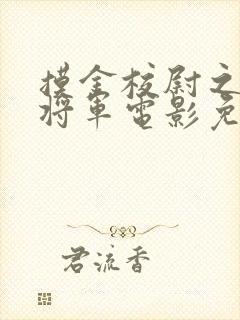 摸金校尉之
将军电影免
君流香